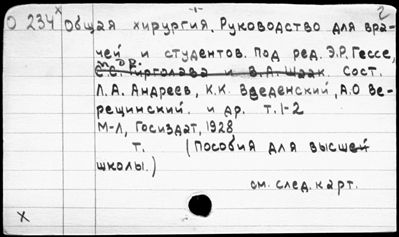 О 234 Общая хирургия. Руководство для вра-
чей и студентов. Под ред. Э.Р. Гессе,
и др.
С.С. Гирголава и В.А. Шаак. Сост.
Л.А. Андреев, К.К. Введенский, А.О. Ве-
рещинский. и др. т. 1-2
М-Л, Госиздат, 1928
т. (Пособия для высшей
школы.)
см. след. карт.